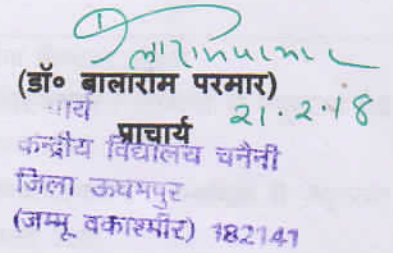 (डॉ॰ बालाराम परमार)
प्राचार्य 21.2.18
केन्द्रीय विद्यालय चनैनी
जिला ऊधमपुर
(जम्मू वकाश्मीर) 182141